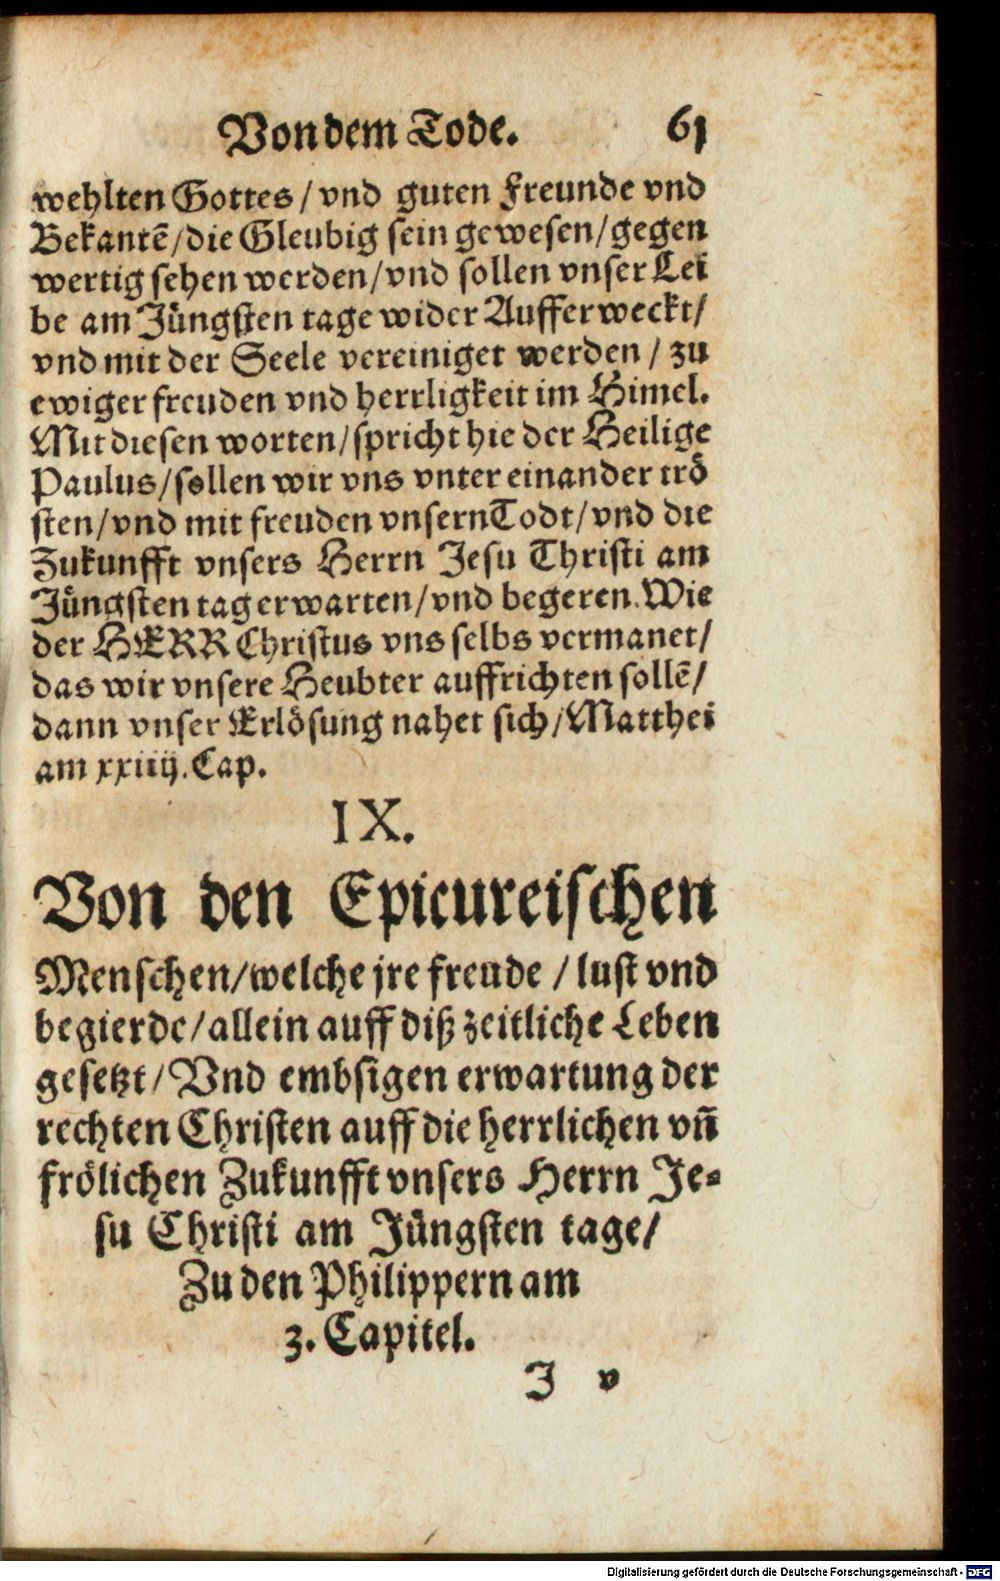 Von dem Tode. 61
wehlten Gottes / vnd guten Freunde vnd
Bekantẽ / die Gleubig sein gewesen / gegen
wertig sehen werden / vnd sollen vnser Lei
be am Jüngsten tage wider Aufferweckt /
vnd mit der Seele vereiniget werden / zu
ewiger freuden vnd herrligkeit im Himel.
Mit diesen worten / spricht hie der Heilige
Paulus / sollen wir vns vnter einander trö
sten / vnd mit freuden vnsern Todt / vnd die
Zukunfft vnsers Herrn Jesu Christi am
Jüngsten tag erwarten / vnd begeren. Wie
der HERR Christus vns selbs vermanet /
das wir vnsere Heubter auffrichten sollẽ /
dann vnser Erlösung nahet sich / Matthei
am xxiiij. Cap.
IX.
Von den Epicureischen
Menschen / welche jre freude / lust vnd
begierde / allein auff diß zeitliche Leben
gesetzt / Vnd embsigen erwartung der
rechten Christen auff die herrlichen vñ
frölichen Zukunfft vnsers Herrn Je-
su Christi am Jüngsten tage /
Zu den Philippern am
3. Capitel.
J v
Digitalisierung gefördert durch die Deutsche Forschungsgemeinschaft - DFG